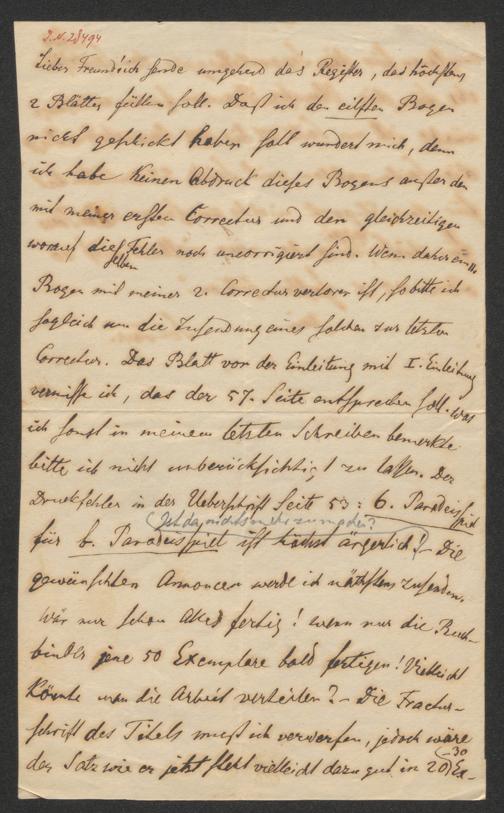 I.N. 28494
Lieber Freund! ich sende umgehend das Register, das höchstens
2 Blätter füllen soll. Daß ich den eilften Bogen
nicht geschickt haben soll wundert mich, denn
ich habe keinen Abdruck dieses Bogens außer den
mit meiner ersten Correctur und den gleichzeitigen
worauf dieselben Fehler noch uncorrigiert sind. Wenn daher ein 11.
Bogen mit meiner 2. Correctur verloren ist, so bitte ich
sogleich um die Zusendung eines solchen zur letzten
Correctur. Das Blatt vor der Einleitung mit I. Einleitung
vermisse ich, das der 57. Seite entsprechen soll. Was
ich sonst in meinem letzten Schreiben bemerkte
bitte ich nicht unberücksichtigt zu lassen. Der
Druckfehler in der Ueberschrift Seite 53: 6. Paradeisspiel
(Ist da nichts mehr zu machen?
für b. Paradeisspiel ist höchst ärgerlich! – Die
gewünschten Annoncen werde ich nächstens zusenden.
Wär nur schon Alles fertig! wenn nur die Buch-
binder jene 50 Exemplare bald fertigen! Vielleicht
könnte man die Arbeit verteilen? – Die Fractur-
schrift des Titels muß ich verwerfen, jedoch wäre
der Satz wie er jetzt steht vielleicht dazu gut in 20 (–30) Ex-